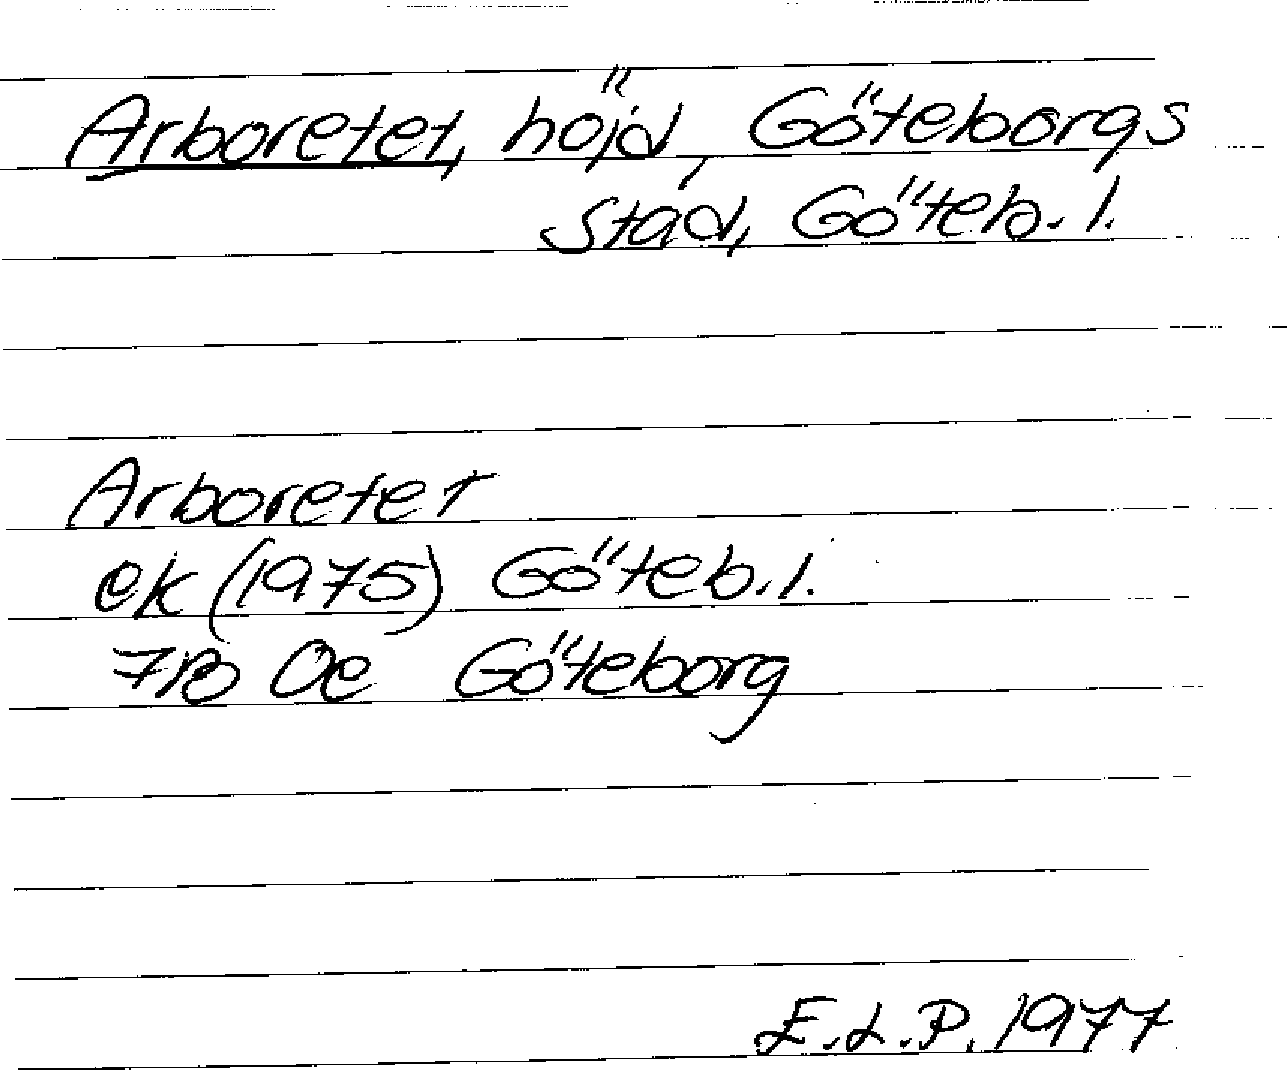 Arboretet, höjd, Göteborgs
stad, Göteb. l.
Arboretet
ek (1975) Göteb. l.
7B Oe Göteborg
E.L.P. 1977